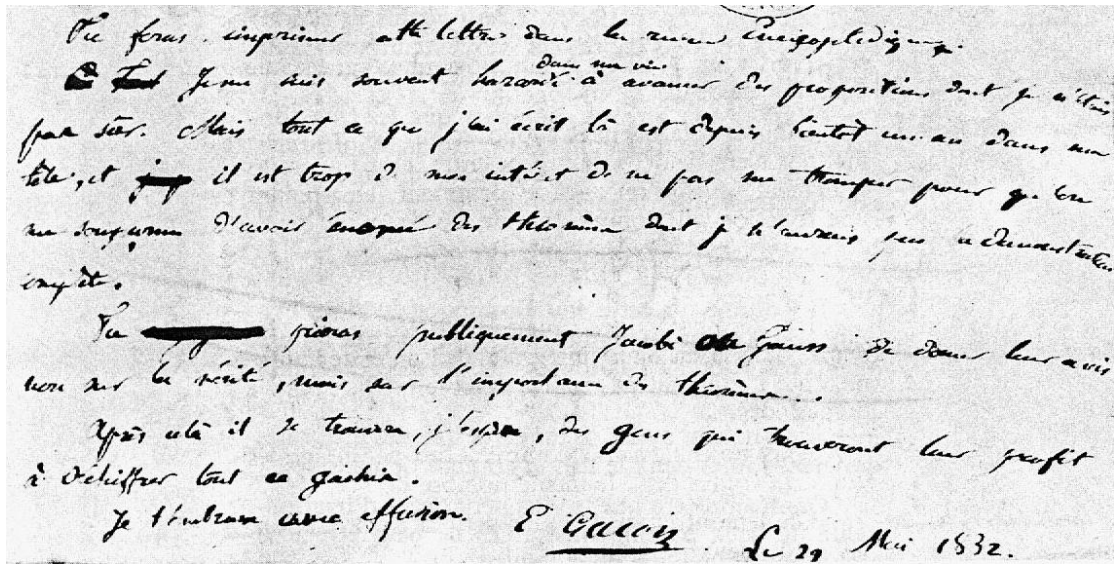 Tu feras imprimer cette lettre dans la revue Encyclopédique.
dans ma vie
Je me suis souvent hasardé à avancer des propositions dont je n'étais
pas sûr. Mais tout ce que j'ai écrit là est depuis bientôt un an dans ma
tête, et il est trop de mon intérêt de ne pas me tromper pour qu'on
me soupçonne d'avoir énoncé des théorèmes dont je n'aurais pas la démonstration
complète.
Tu prieras publiquement Jacobi ou Gauss de donner leur avis
non sur la vérité, mais sur l'importance des théorèmes.
Après cela il se trouvera, j'espère, des gens qui trouveront leur profit
à déchiffrer tout ce gachis.
Je t'embrasse avec effusion. E Galois Le 29 Mai 1832.